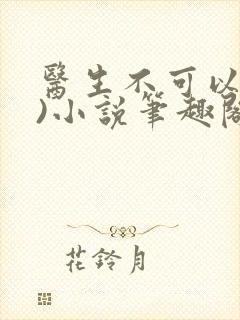 醫生不可以
)小說筆趣閣
花鈴月